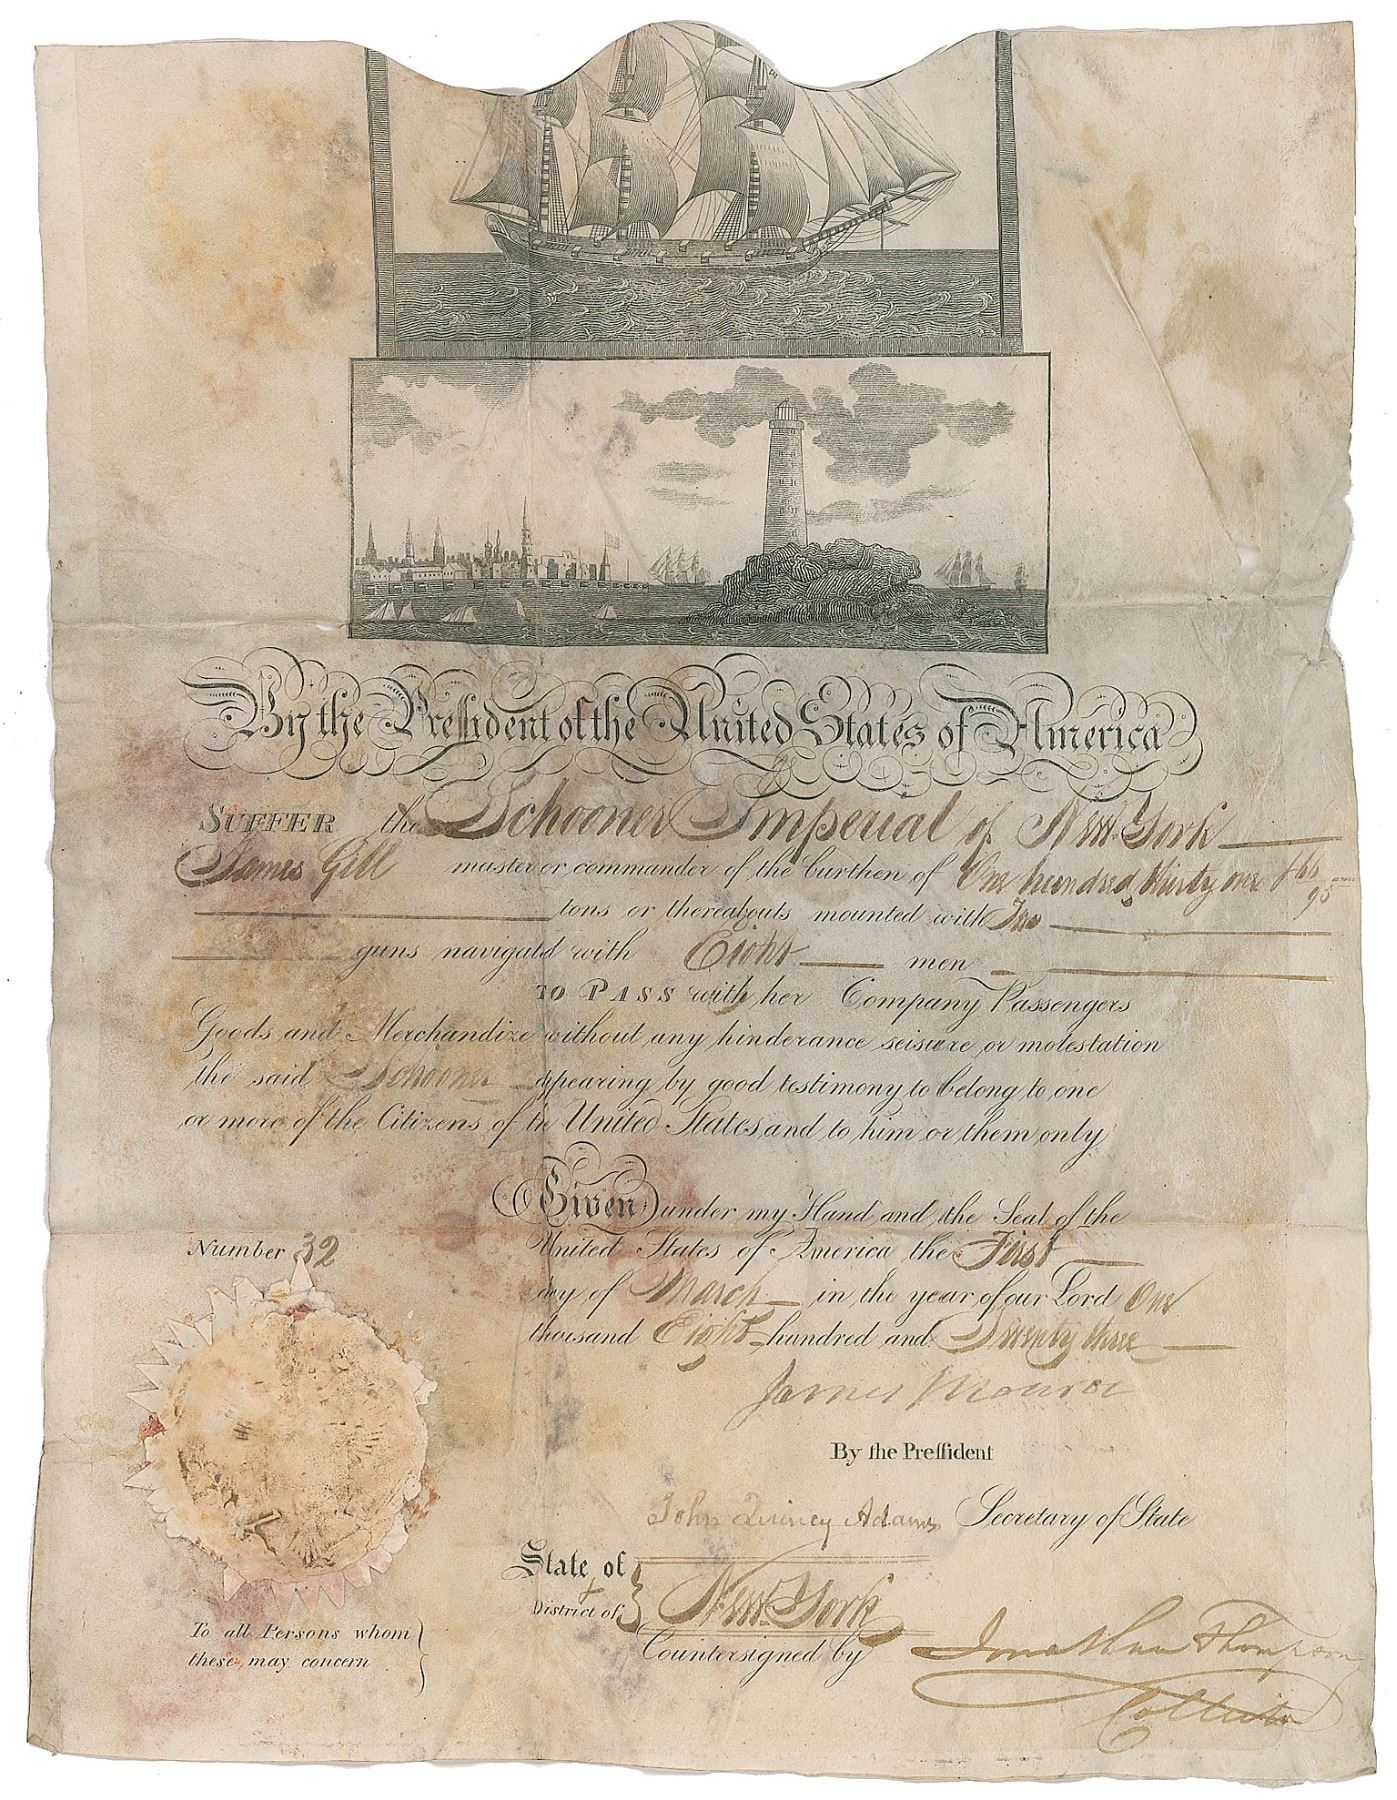 By the President of the United States of America
SUFFER the Schooner Imperial of New-York
James Gill master or commander of the burthen of One hundred thirty one & 66/95
tons or thereabouts mounted with
guns navigated with Eight men
TO PASS with her Company Passengers
Goods and Merchandize without any hinderance seisure or molestation
the said Schooner appearing by good testimony to belong to one
or more of the Citizens of the United States and to him or them only
Given under my Hand and the Seal of the
Number 32
United States of America the First
day of March in the year of our Lord One
thousand Eight hundred and Twenty three
James Monroe
By the President
John Quincy Adams Secretary of State
State of
District of } New-York
To all Persons whom
these may concern }
Countersigned by Jonathan Thompson
Collector